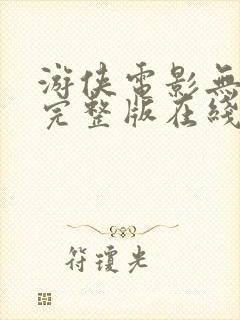 游侠電影無
完整版在綫
符瓊光